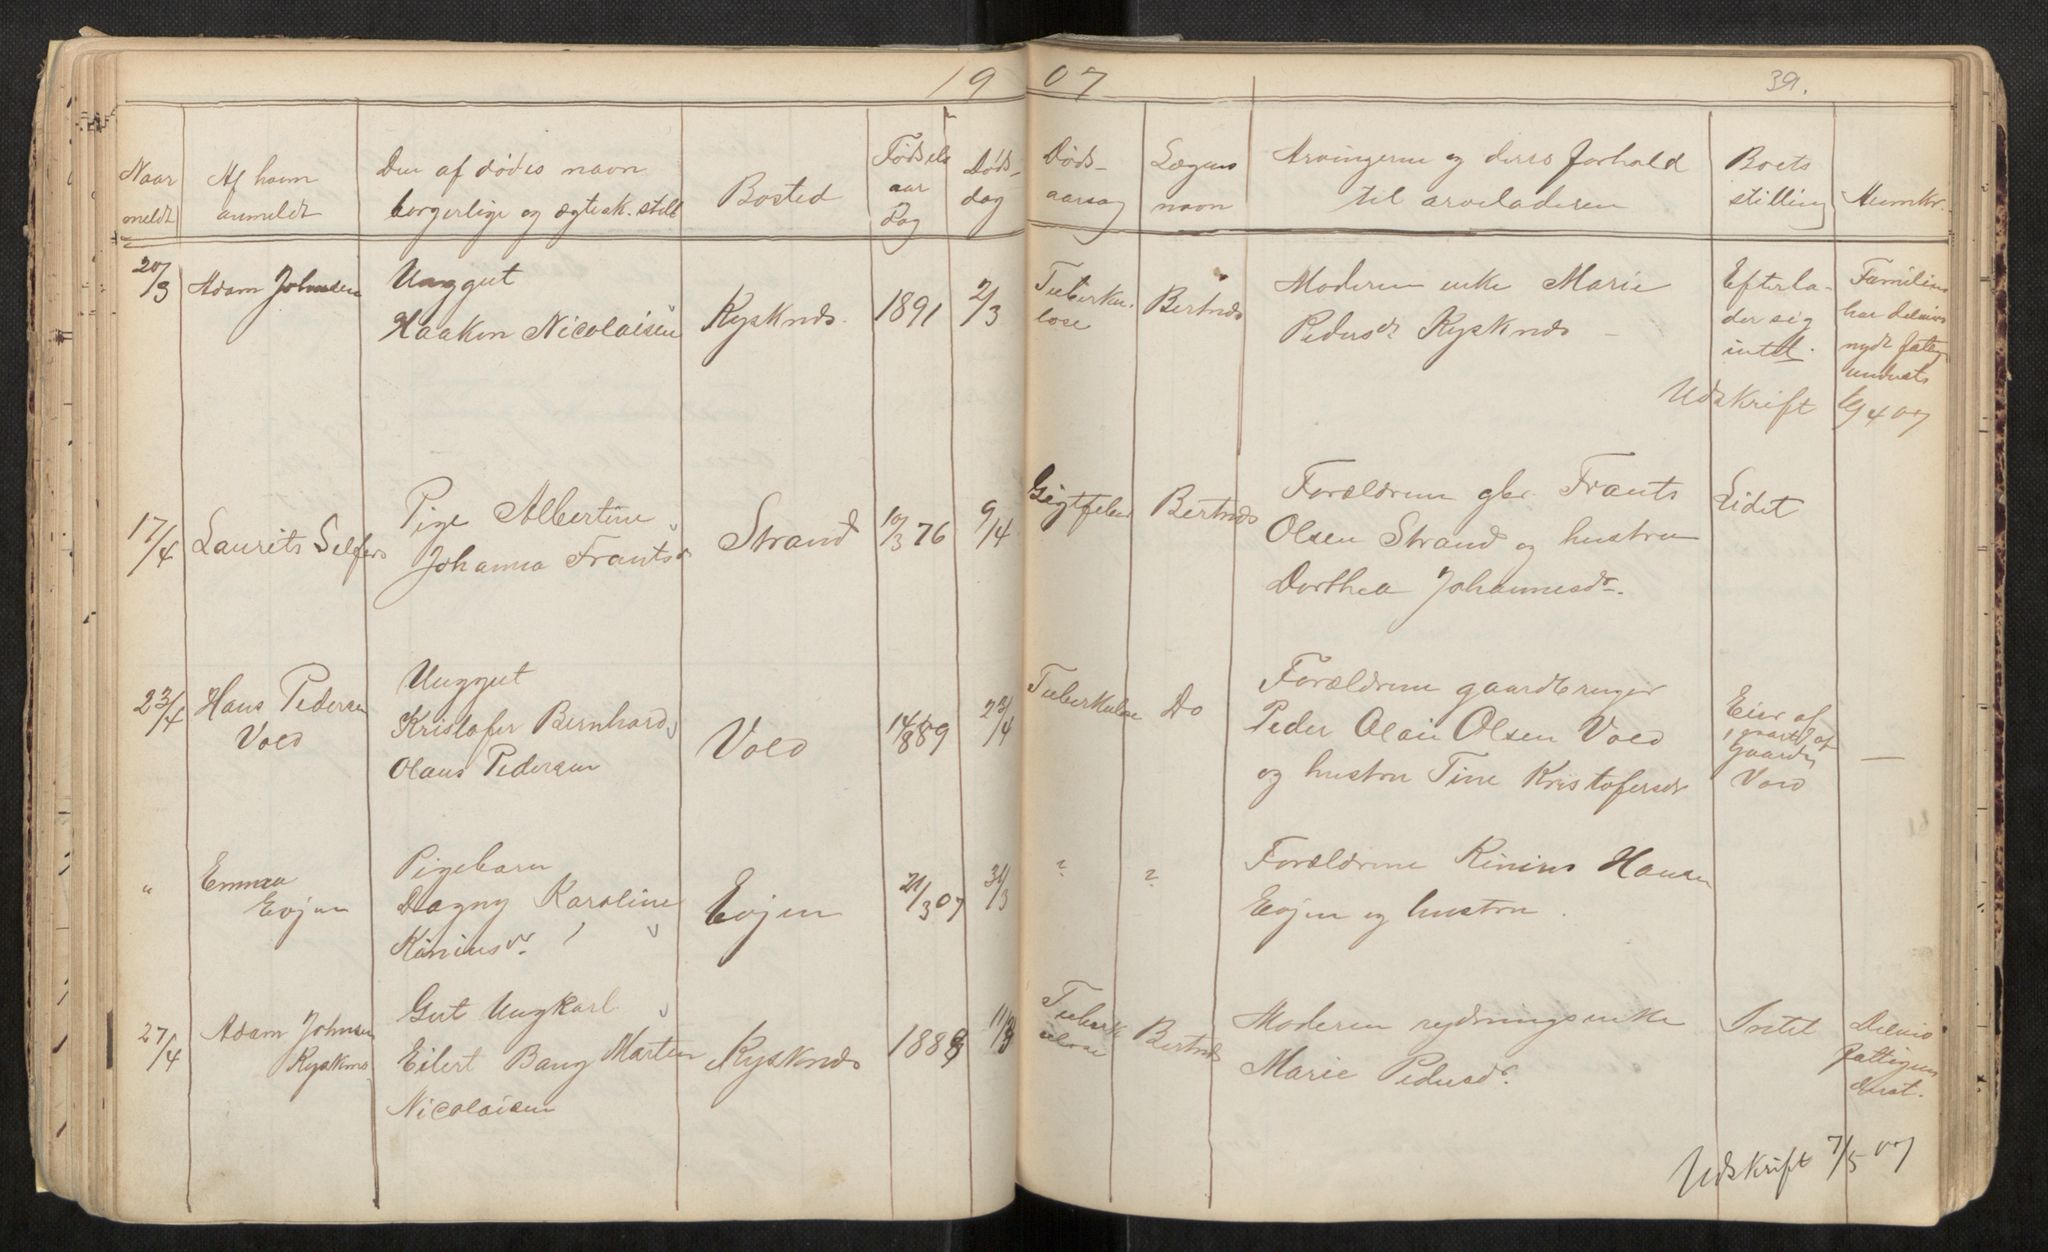 19 07
39.
Naar meldt
Af hvem anmeldt
Den af dødes navn
borgerlige og ægtesk. still
Bosted
Fødsels aar Dag
Døds- dag
Døds- aarsag
Lægens navn
Arvingerne og deres forhold
til arveladeren
Boets stilling
Anmkr.
20/3
Adam Johnsen
Unggut
Haakon Nicolaisen
Rysknds.
1891
2/3
Tuberku-
lose
Bertnds
Moderen enke Marie
Pedersdr Rysknds
Efterla-
der sig
intet.
Familien
har delvis
nydt fattig
Udskrift
17/4
Laurits
Pige Albertine
Johanna Frantsdr
Strand
10/3 76
9/4
Gigtfeber
Bertnds
Forældrene gbr. Frants
Olsen Strand og hustru
Dorthea Johannesdr.
Lidet
23/4
Hans Pedersen
Vold
Unggut
Kristofer Bernhard
Olaus Pedersen
Vold
14/8 89
23/4
Tuberkulose
Do
Forældrene gaardbruger
Peder Olai Olsen Vold
og hustru Tine Kristofersdr
Eier af
Gaarden
Vold
—
"
Emma
Evjen
Pigebarn
Dagny Karoline
Kiniusdr.
Evjen
21/3 07
31/3
?
?
Forældrene Kinius Hansen
Evjen og hustru.
27/4
Adam Johnsen
Ryskns
Gut Ungkarl
Eilert Bang Marten
Nicolaisen
Rysknds
1888
Tuberk
ulose
Bertnds
Moderen rydningsenke
Marie Pedersdr.
Intet
Delvis
fattigun
derst.
Udskrift 7/5 07